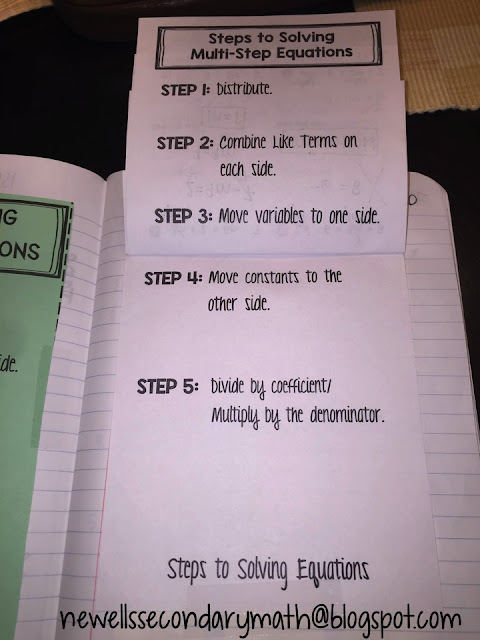 Steps to Solving
Multi-Step Equations
STEP 1: Distribute.
STEP 2: Combine Like Terms on
each side.
STEP 3: Move variables to one side.
STEP 4: Move constants to the
other side.
STEP 5: Divide by coefficient/
Multiply by the denominator.
Steps to Solving Equations
NG
ONS
ide.
newellssecondarymath@blogspot.com